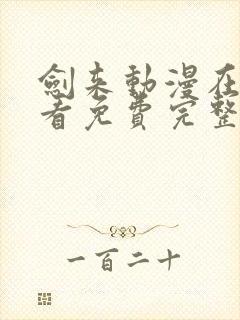 劍来動漫在
看免費完整
一百二十